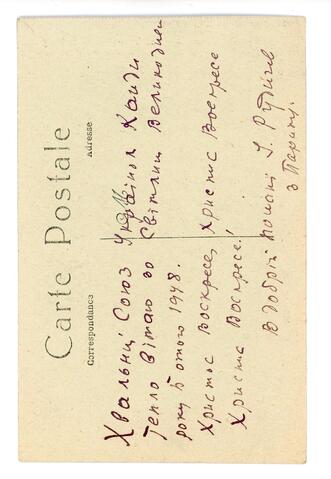 Carte Postale
Correspondance
Adresse
Хвальний Союз Українок Канди
Тепло Вітаю зо Світлим Великоднем
року Б отого 1948.
Христос Воскресе, Христос Воскресе
Христос Воскресе!
В добрій І. Рудичів
з Парижу.